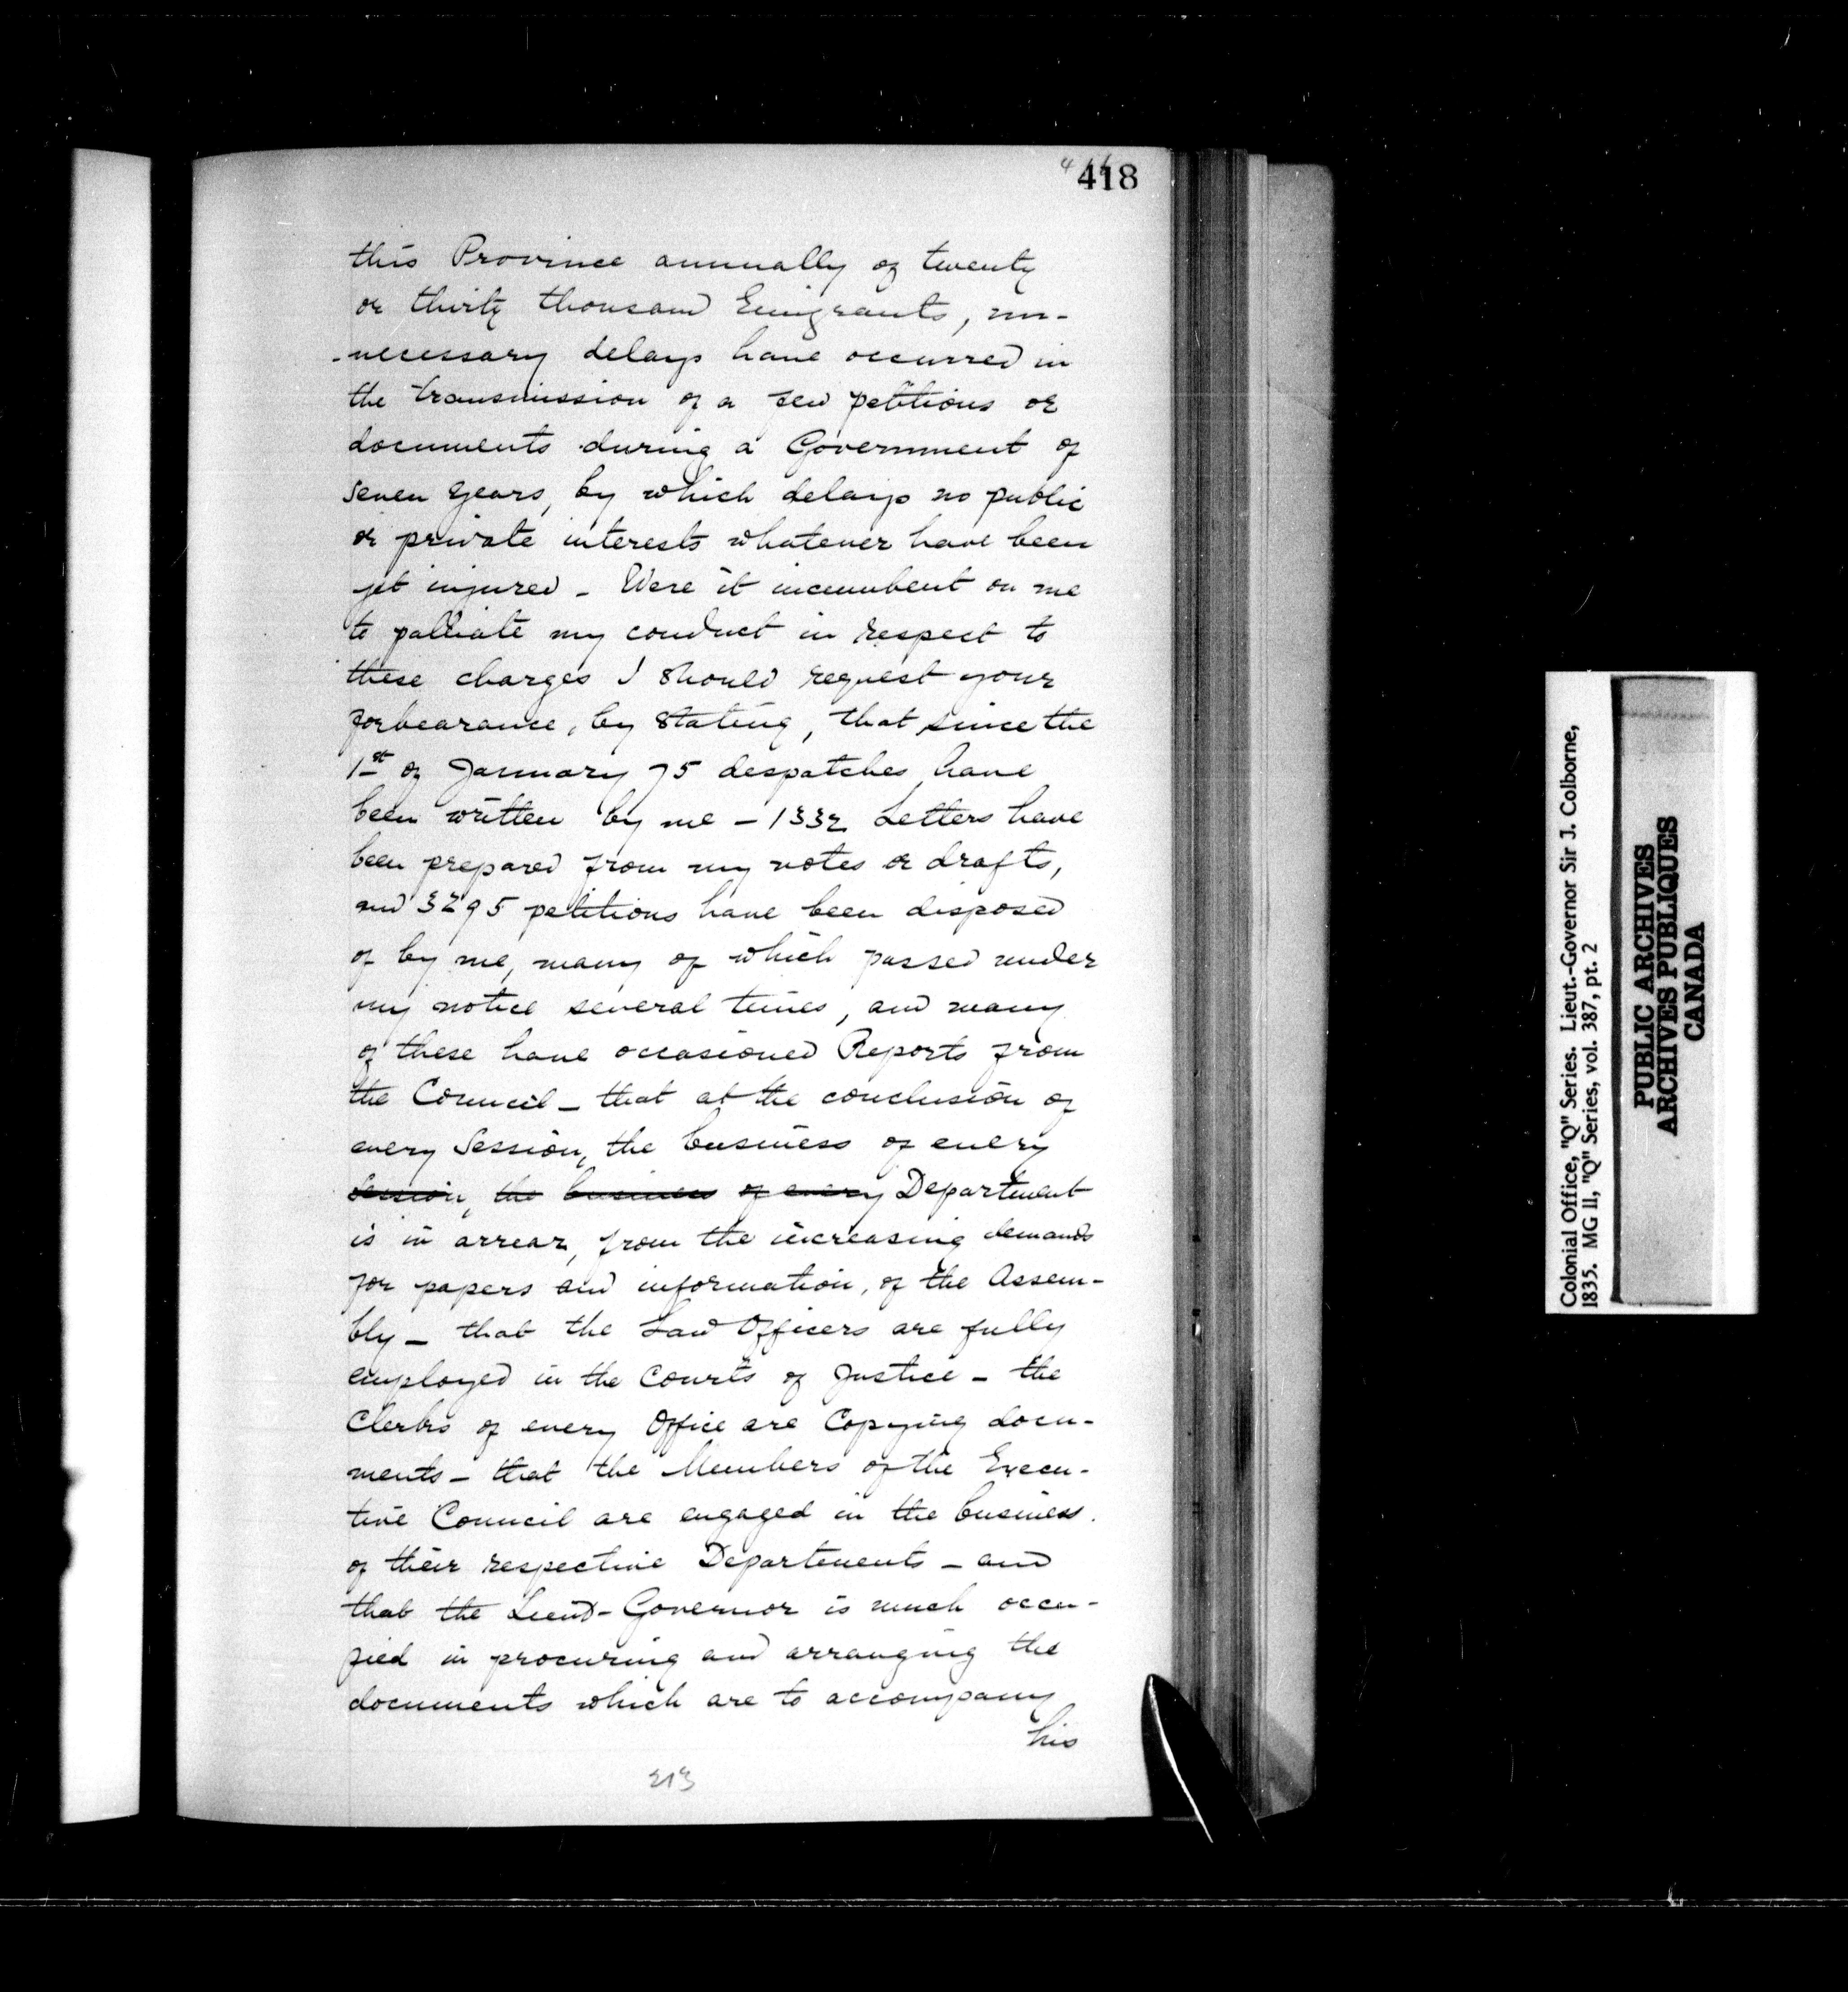 418
this Province annually of twenty
or thirty thousand Emigrants, un-
-necessary delays have occurred in
the transmission of a few petitions or
documents during a Government of
seven years, by which delays no public
or private interests whatever have been
yet injured - Were it incumbent on me
to palliate my conduct in respect to
these charges I should request your
forbearance, by stating, that since the
1st of January 75 despatches have
been written by me - 1332 Letters have
been prepared from my notes or drafts,
and 3295 petitions have been disposed
of by me, many of which passed under
my notice several times, and many
of these have occasioned Reports from
the Council - that at the conclusion of
every Session, the business of every
Session, the business of every Department
is in arrear, from the increasing demands
for papers and information, of the Assem-
bly - that the Law Officers are fully
employed in the Courts of Justice - the
Clerks of every Office are Copying docu-
ments - that the Members of the Execu-
tive Council are engaged in the business.
of their respective Departments - and
that the Lieut-Governor is much occu-
pied in procuring and arranging the
documents which are to accompany
his
213
Colonial Office, "Q" Series. Lieut.-Governor Sir J. Colborne,
1835. MG 11, "Q" Series, vol. 387, pt. 2
PUBLIC ARCHIVES
ARCHIVES PUBLIQUES
CANADA